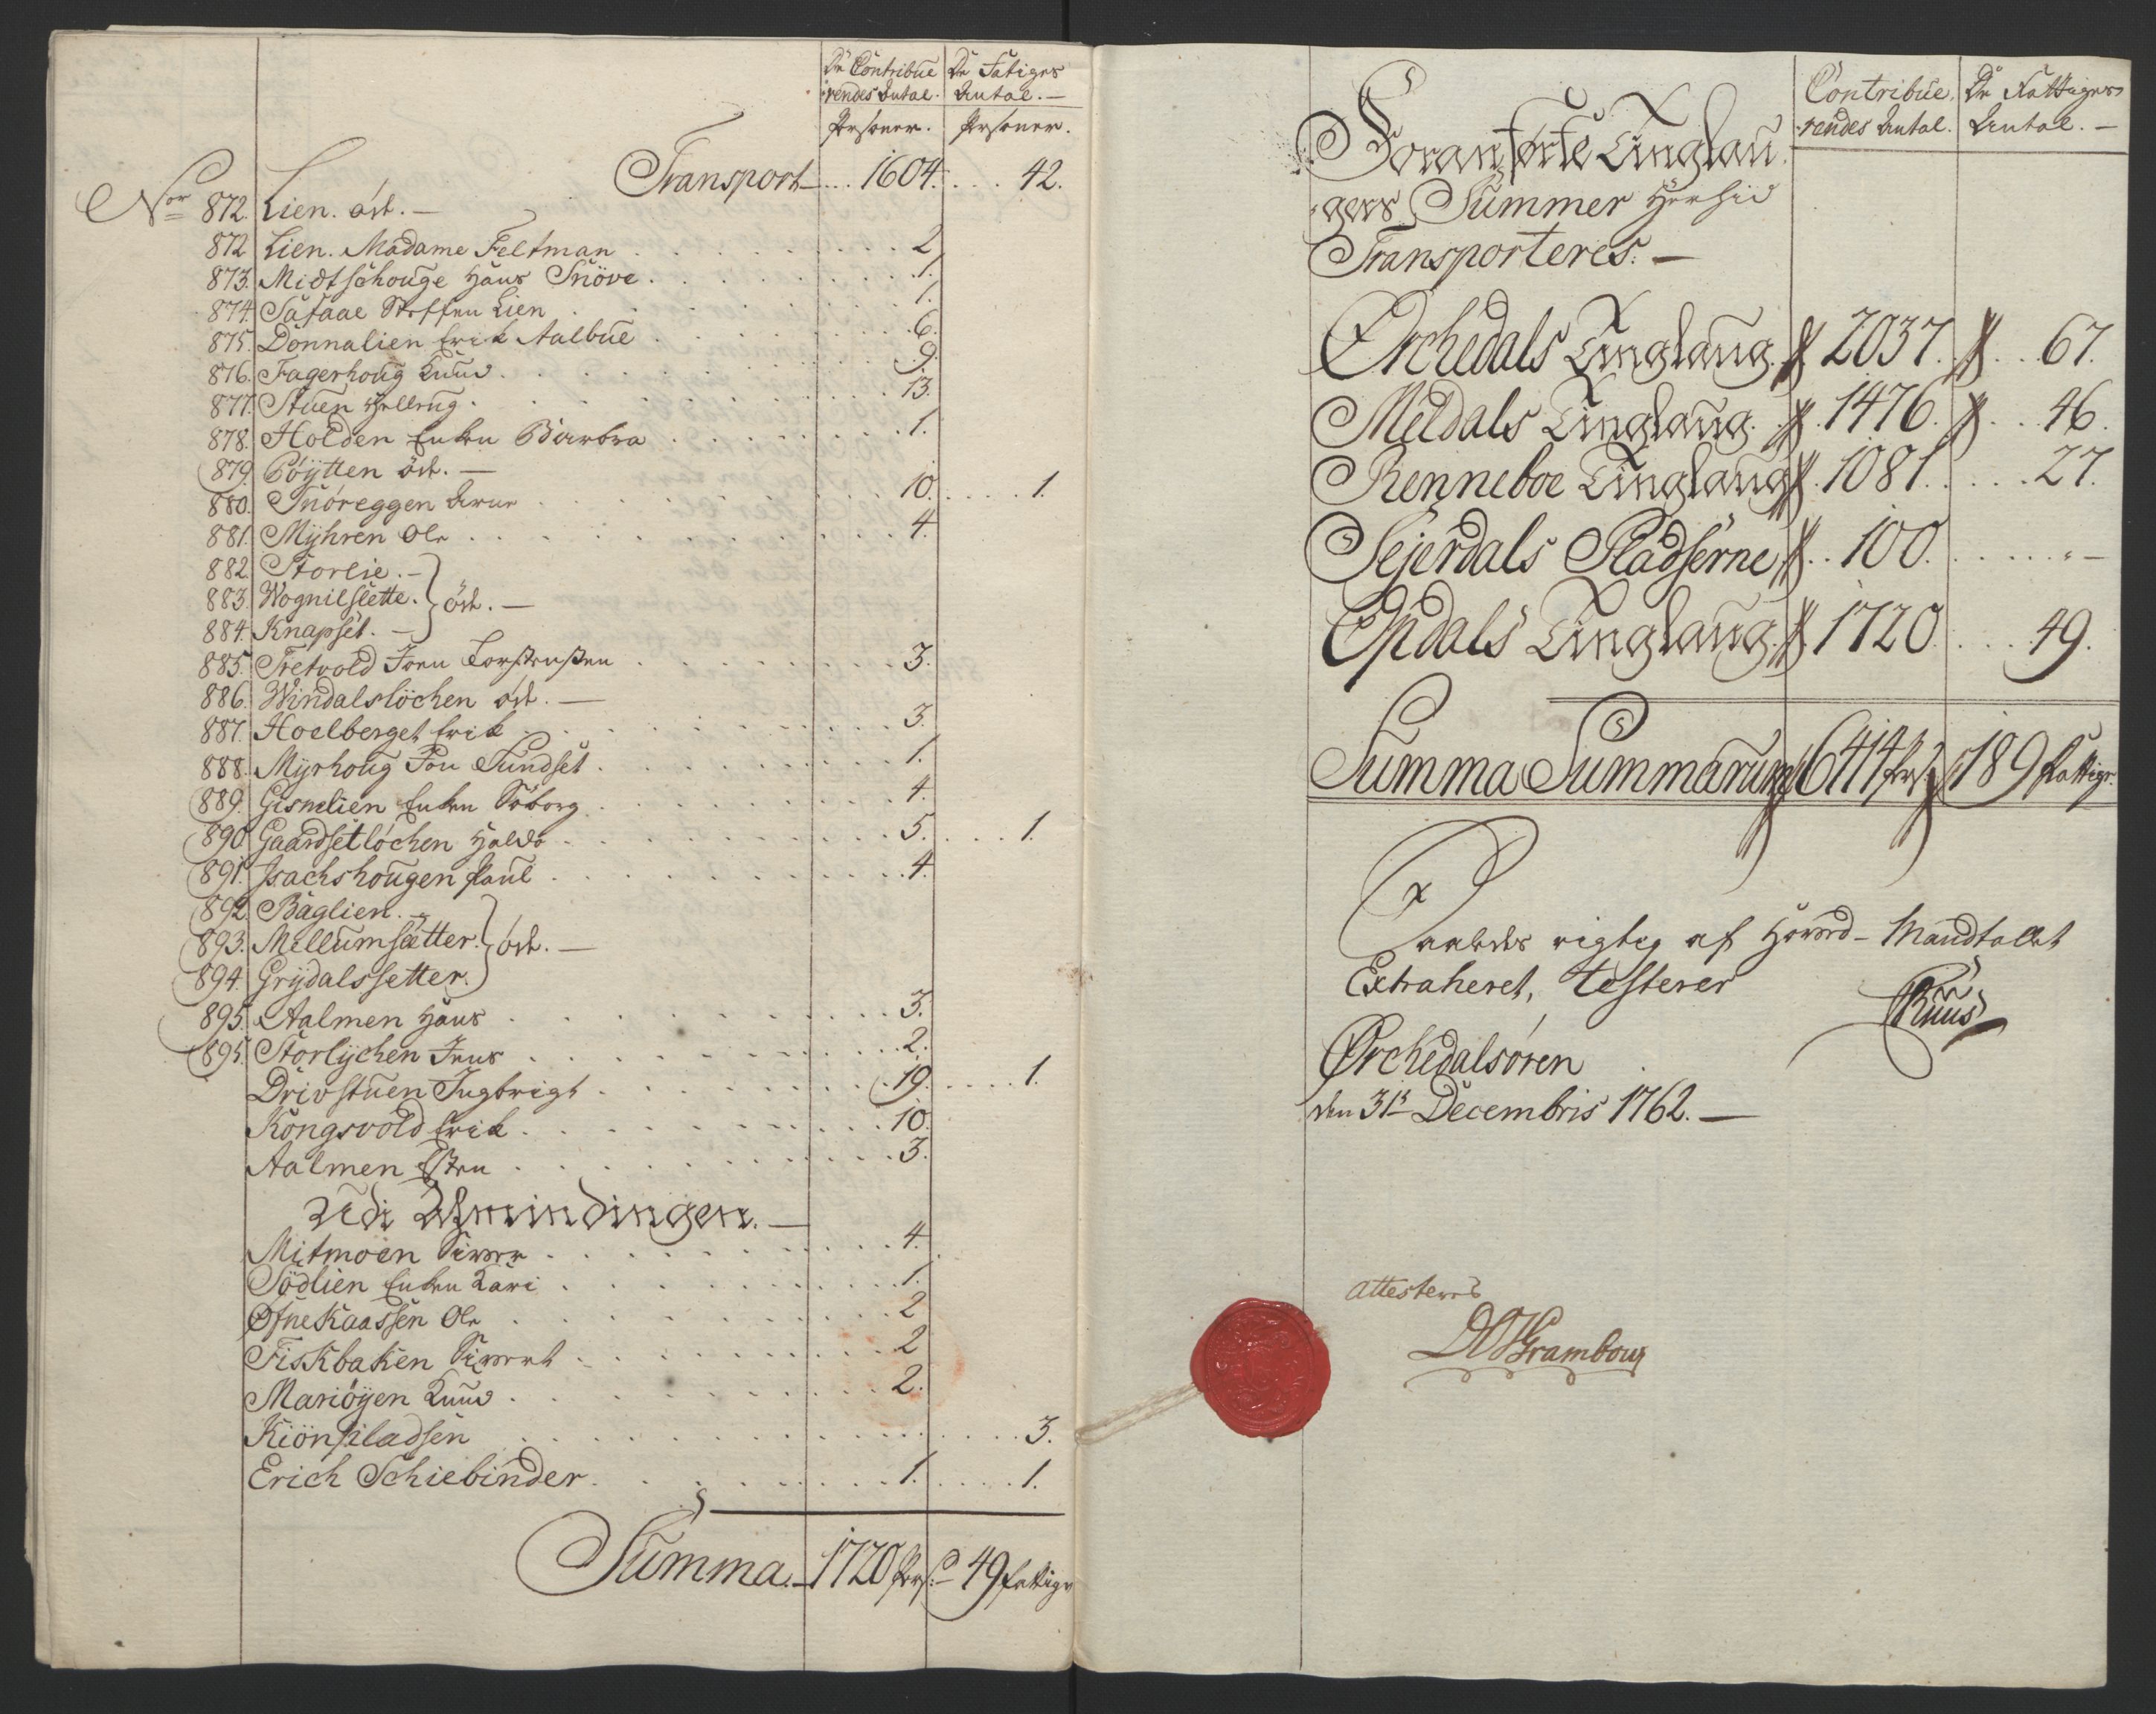 De Contribue De Fatiges
rendes Antal. Antal. —
Personer. Personer.
Transport — ... 1604. ... 42.
Nor 872. Lien. öde. —
872 Lien. Madame Feltman . . . 2
873. Midtschouge Hans Snöve . . . 1.
874. Steffen Lien . . . 1.
875. Donnalien Erik Aalbue . . . 6.
876. Fagerhoug Knud . . . 9.
877. Stuen Hellrug . . . 13.
878. Holden Enken Barbra . . . 1.
879. Göytten öde. —
880. Snöreggen Arne . . . 10. . . . 1.
881. Myhren Ole . . . 4.
882. Storlie. —
883. Wognilslette. } öde. —
884. Knapset. —
885. Tretvold Joen Torstensen . . . 3.
886. Windalslöchen öde. —
887. Hoelberget Erik . . . 3.
888. Myrhoug Jon Sundset . . . 1.
889. Gismlien Enken Soborg . . . 4.
890 Gaardsetlöchen Haldo . . . 5. . . . 1.
891. Isachshougen Paul . . . 4.
892. Bäglien. —
893. Mellumsletter. } öde. —
894. Grydalssetter.
895. Aalmen Hans . . . 3.
895. Storlychen Jens . . . 2.
Drivstuen Ingbrigt . . . 19. . . . 1.
Kongsvold Erik . . . 10.
Aalmen Esten . . . 3.
Udi Almindingen. —
Mitmoen Siver . . . 4.
Södlien Enken Kari . . . 1.
Øfne Kaassen Ole . . . 2
Fiskbaken Sivert . . . 2
Mariöyen Knud . . . 2.
Kiönpladsen . . . 3.
Erich Schiebinder . . . 1. . . . 1.
Summa. — 1720 Pers: — 49 fattige
Contribue. De Fattiges
rendes Antal. Antal. —
Foranførte Tinglau
gers Summer Herhid
Transporteres. —
Orchedals Tinglaug. 2037. . . 67.
Meldals Tinglaug. 1476. . . 46.
Renneboe Tinglaug 1081. . . 27.
Sejerdals Pladserne . . 100. . . " —
Opdals Tinglaug. 1720. . . 49.
Summa Summarum 6414 prs 189 fattige
Saaledes rigtig af Hoved-Mandtallet
Extraheret, testerer
Ruus
Orchedalsøren
den 31t Decembris 1762. —
Attesteres
Grambow